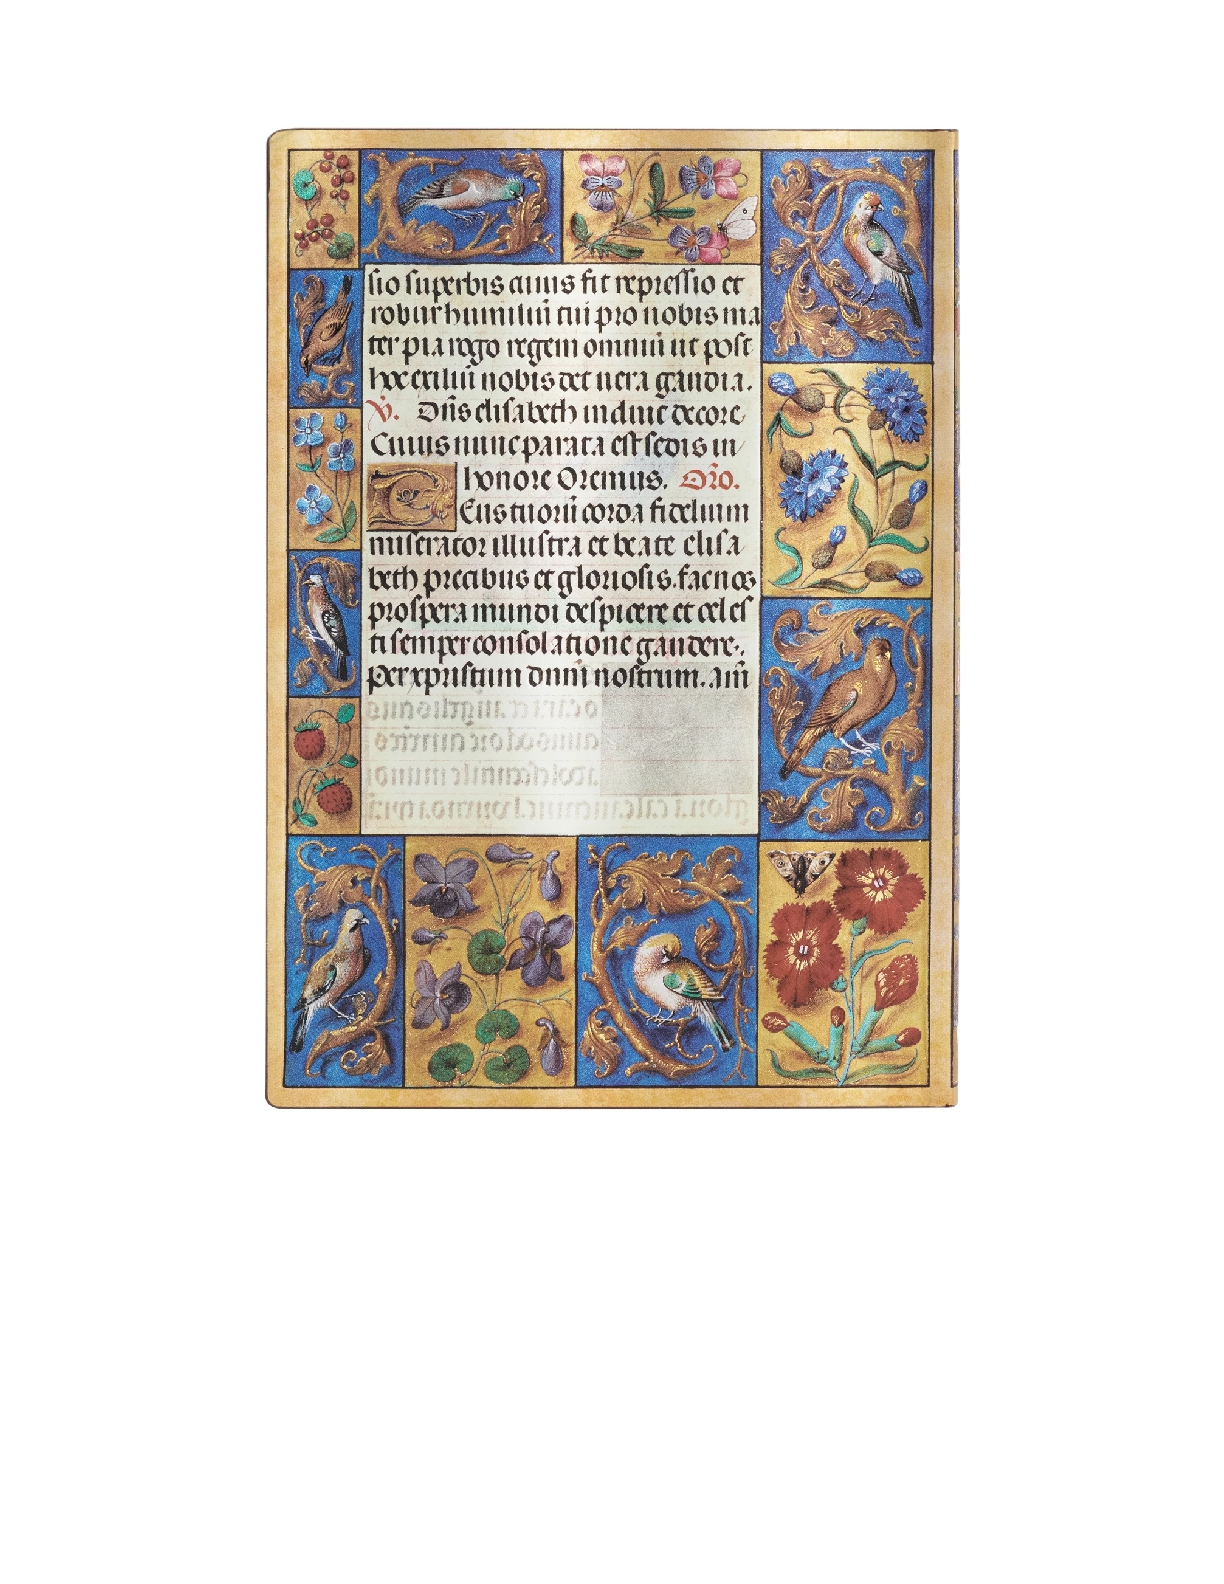 sio superbis cuius fit repressio et
robur humiliū tui pro nobis ma
ter pia rogo regem omniū ut post
hoc exiliū nobis det uera gaudia.
V. Diis elisabeth induit decore
Cuius nunc parata est sedis in
honore Oremus. Oro.
Deus tuorū corda fidelium
miserator illustra et beate elisa
beth precibus et gloriosis. fac nos
prospera mundi despicere et celes
ti semper consolatione gaudere.
Per xpristum dnm nostrum. am